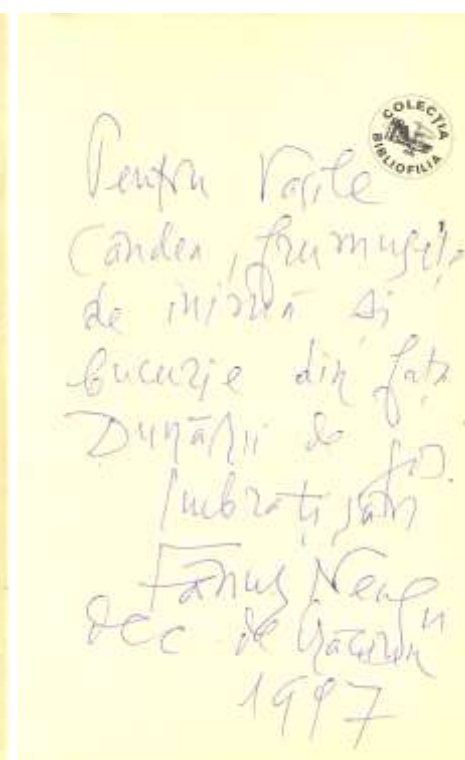 COLECȚIA BIBLIOFILIA
Pentru Vasile
Candea, frumusețe
de inimă și
bucurie din fața
Dunării de jos.
Îmbrățișări
Fănuș Neagu
Dec de Crăciun
1997